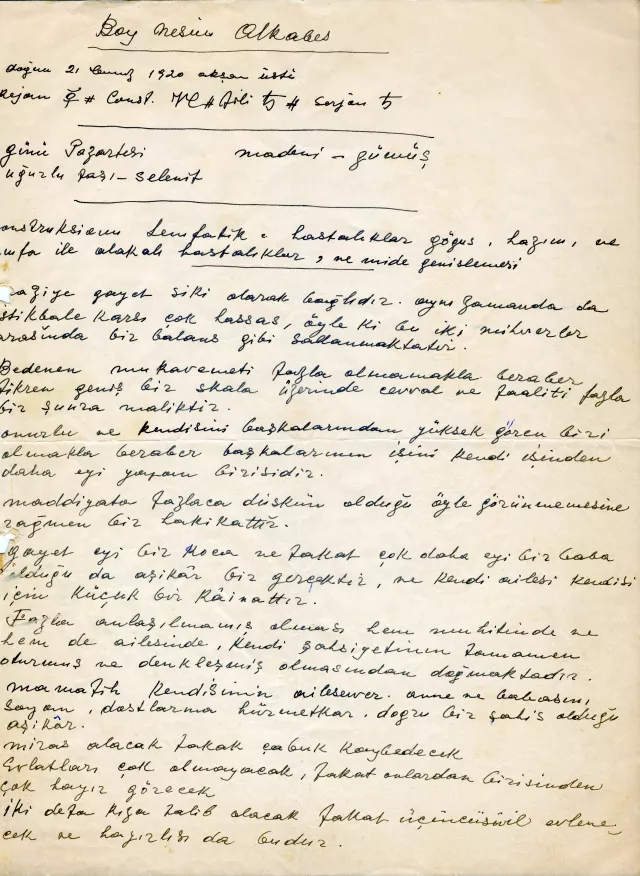 Bay Nesim Alkabes
doğum 21 temuz 1920 akşam üstü
Rejan # Const. # # 
günü Pazartesi madeni - gümüş
uğurlu taşı - selenit
Lenfatik. hastalıklar göğus, hazım, ve
ile alakalı hastalıklar, ve mide genislemesi
gayet siki olarak bağlıdır. aynı zamanda da
istikbale karsı çok hassas, öyle ki bu iki mihverler
arasında bir balans gibi sallanmaktadır.
Bedenen mukavemeti fazla olmamakla beraber
fikren geniş bir skala üzerinde cevval ve faaliti fazla
bir şuura maliktir.
onurlu ve kendisini başkalarından yüksek gören biri
olmakla beraber başkalarının işini kendi işinden
daha eyi yapan birisidir.
maddiyata fazlaca düskün olduğu öyle görünmemesine
rağmen bir hakikattır.
gayet eyi bir koca ve fakat çok daha eyi bir baba
olduğu da aşikâr bir gerçektir, ve kendi ailesi kendisi
için küçük bir kâinattır.
Fazla anlaşılmamış olması hem muhitinde ve
hem de ailesinde, kendi şahsiyetinin tamamen
oturmuş ve denkleşmiş olmasından doğmaktadır.
mamafih kendisinin ailesever. anne ve babasını,
sayan, dostlarına hürmetkar. doğru bir şahis olduğu
aşikâr.
miras alacak fakat çabuk kaybedecek
Evlatları çok olmayacak, fakat onlardan birisinden
çok hayır görecek
iki defa kıza talib olacak fakat üçüncüsüvil evlene_
cek ve hayırlısı da budur.